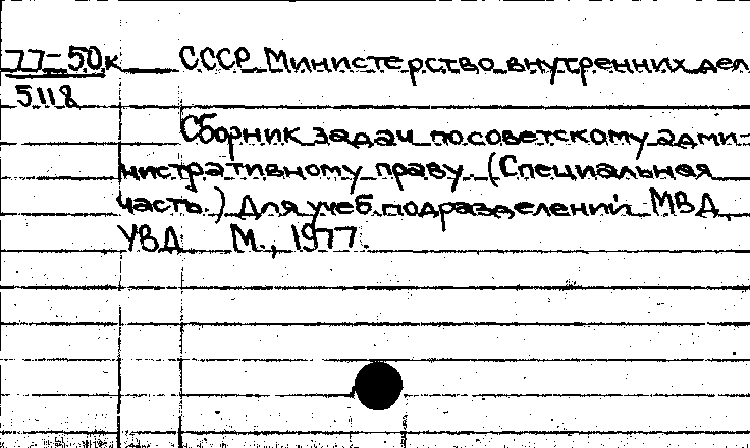 77-50к СССР Министерство внутренних дел
5118
Сборник задач по советскому адми-
нистративному праву. (Специальная
часть.) Для учеб. подразделений МВД,
УВД М., 1977.